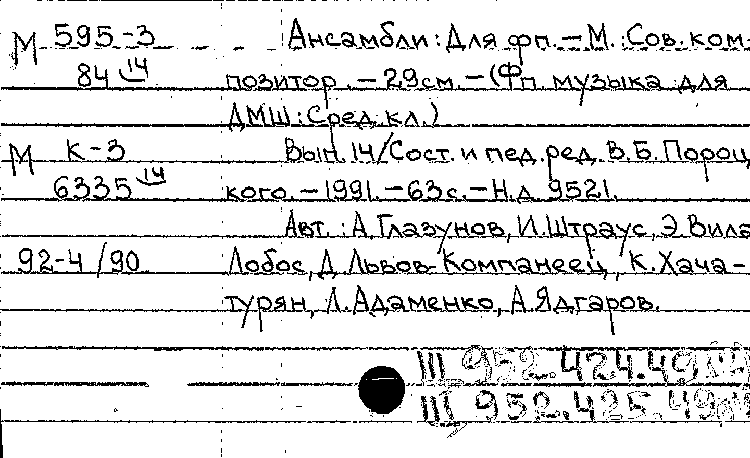 М 595-3 Ансамбли: Для фп. – М.: Сов. ком-
84 14 позитор. – 29см. – (Фп. музыка для
ДМШ: Сред. кл.)
М К-3 Вып. 14/Сост. и пед. ред. В.Б. Пороц
6335 14 кого. – 1991. – 63с. – Н.д. 9521.
Авт.: А. Глазунов, И. Штраус, Э. Вила
92-4/90 Лобос, Д. Львов-Компанеец, К. Хача-
турян, Л. Адаменко, А. Ядгаров.
III 952.424.49
III 952.425.49